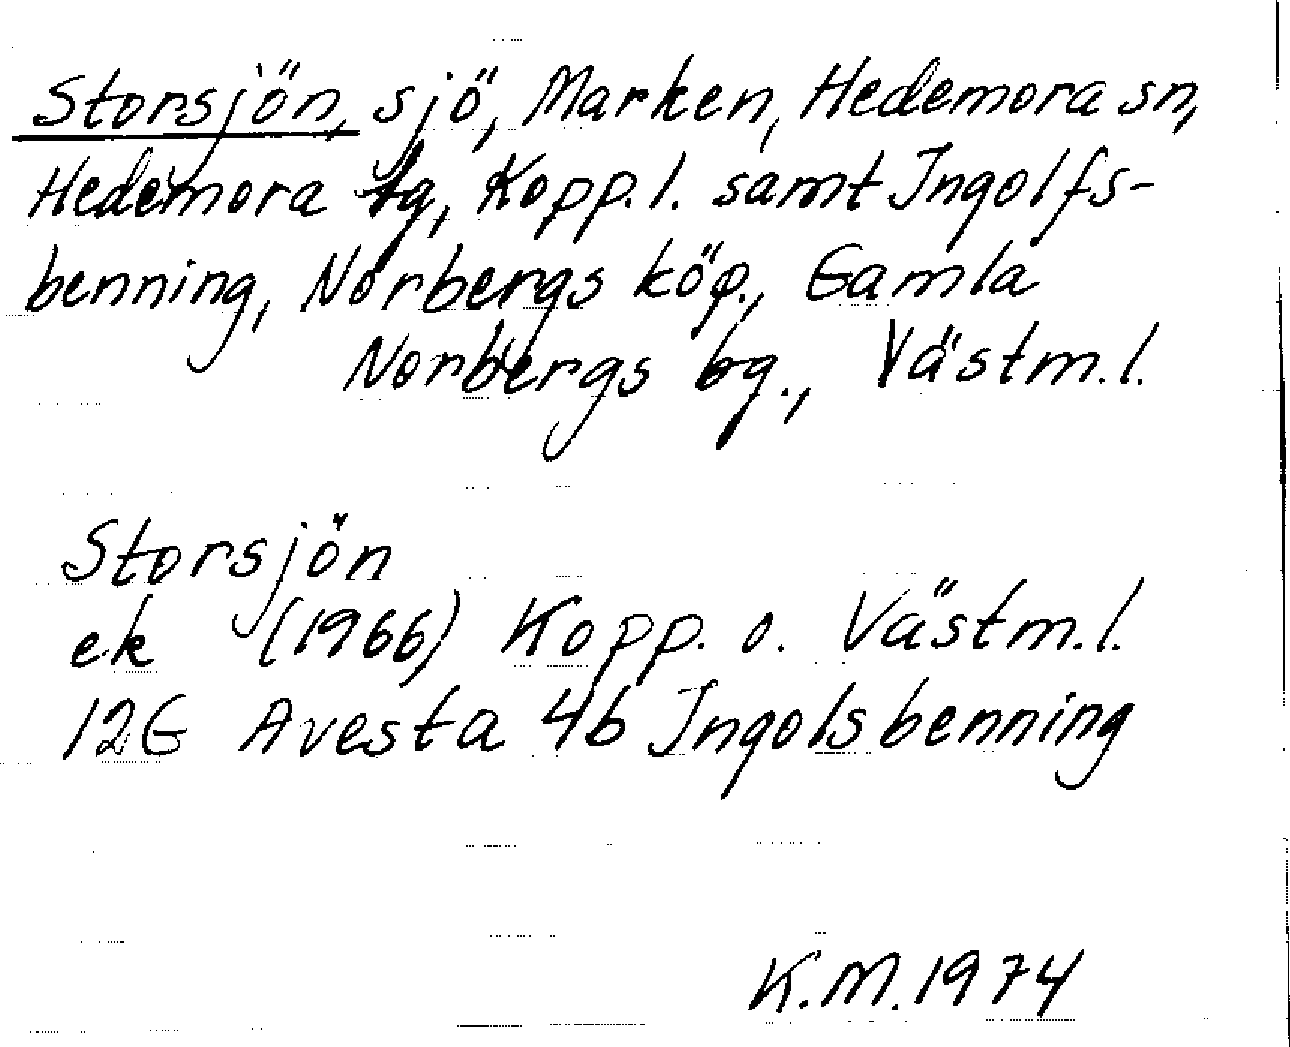 Storsjön, sjö, Marken, Hedemora sn,
Hedemora tg, Kopp.l. samt Ingolfs-
benning, Norbergs köp., Gamla
Norbergs bg., Västm.l.
Storsjön
ek (1966) Kopp. o. Västm.l.
12G Avesta 4b Ingolsbenning
K.M. 1974